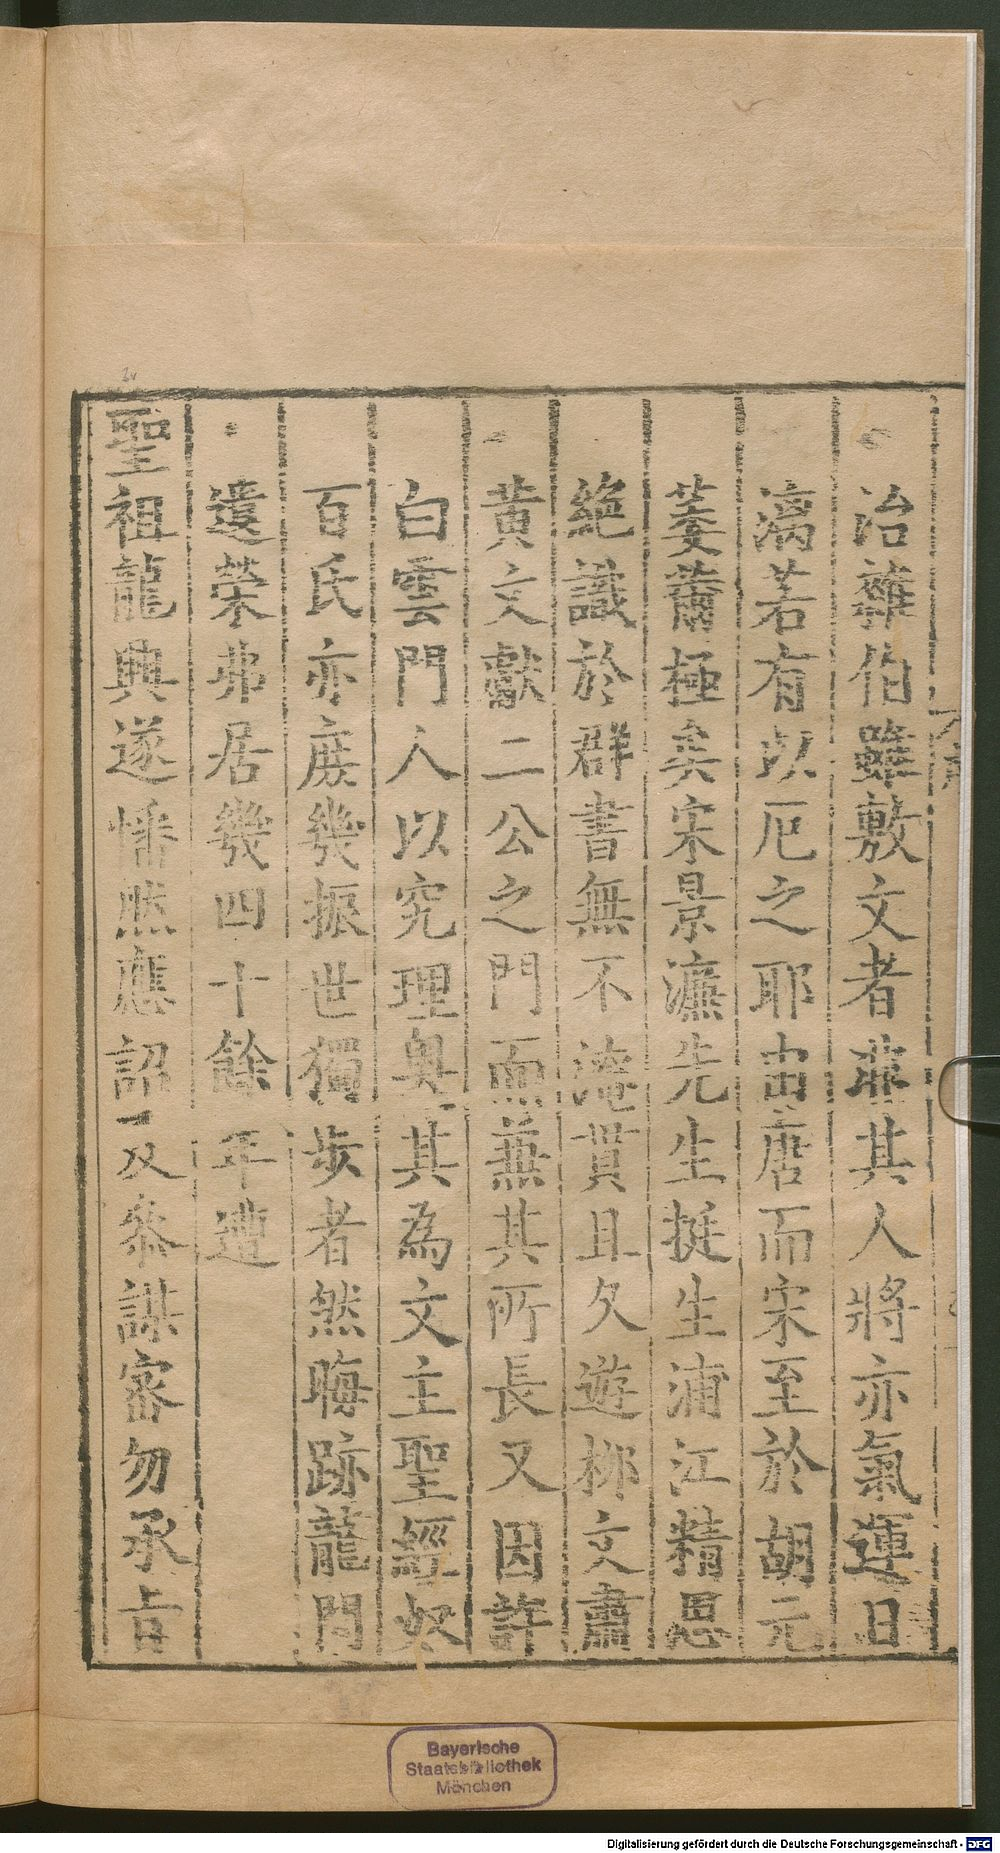 冶雜伯雖敷文者雖其人將亦氣運日
漓若有以厄之耶由唐而宋至於胡元
萎薾極矣宋景濂先生挺生浦江精思
絕識於群書無不淹貫且久遊栁文肅
黃文獻二公之門而兼其所長又因許
白雲門人以究理奧其為文主聖經奴
百氏亦庻幾振世獨步者然晦跡龍門
遺榮弗居幾四十餘年遭
聖祖龍興遂幡然應詔一及參謀審勿承旨
Bayerische
Staatsbibliothek
München
Digitalisierung gefördert durch die Deutsche Forschungsgemeinschaft - DFG